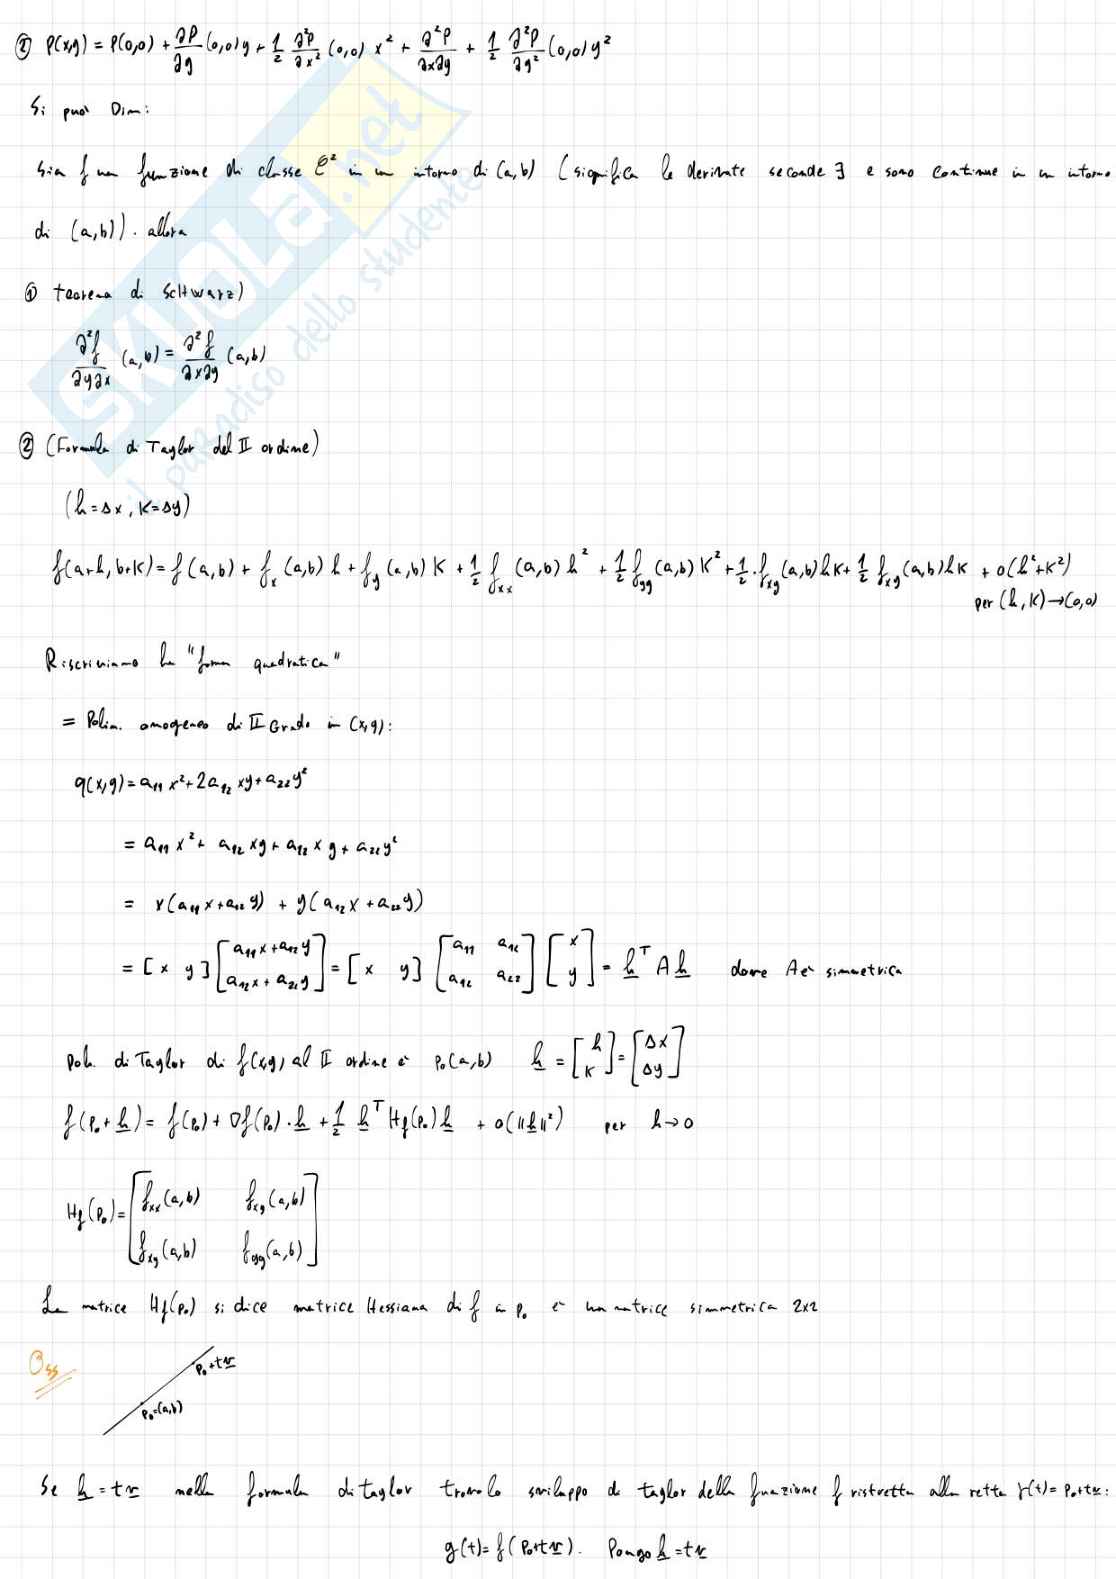 ② P(x,y) = P(0,0) + ∂P/∂y (0,0) y + 1/2 ∂²P/∂x² (0,0) x² + ∂²P/∂x∂y + 1/2 ∂²P/∂y² (0,0) y²
Si può Dim:
Sia f una funzione di classe C² in un intorno di (a,b) (significa le derivate seconde ∃ e sono continue in un intorno
di (a,b)). allora
① teorema di SCHwarz)
∂²f/∂y∂x (a,b) = ∂²f/∂x∂y (a,b)
② (Formula di Taylor del II ordine)
(h=Δx, K=Δy)
f(a+h, b+K) = f(a,b) + f_x (a,b) h + f_y (a,b) K + 1/2 f_xx (a,b) h² + 1/2 f_yy (a,b) K² + 1/2 · f_xy (a,b) hK + 1/2 f_xy (a,b) hK + o(h²+K²)
per (h,K)→(0,0)
Riscriviamo la "forma quadratica"
= Polin. omogeneo di II Grado in (x,y):
q(x,y) = a₁₁ x² + 2a₁₂ xy + a₂₂ y²
= a₁₁ x² + a₁₂ xy + a₁₂ x y + a₂₂ y²
= x(a₁₁ x + a₁₂ y) + y(a₁₂ x + a₂₂ y)
= [x y] [a₁₁x + a₁₂y ; a₁₂x + a₂₂y] = [x y] [a₁₁ a₁₂ ; a₁₂ a₂₂] [x ; y] = h^T A h dove A è simmetrica
Pol. di Taylor di f(x,y) al II ordine è P₀(a,b) h = [h ; K] = [Δx ; Δy]
f(P₀ + h) = f(P₀) + ∇f(P₀) · h + 1/2 h^T Hf(P₀) h + o(||h||²) per h→0
Hf(P₀) = [f_xx (a,b) f_xy (a,b) ; f_xy (a,b) f_yy (a,b)]
La matrice Hf(P₀) si dice matrice Hessiana di f in P₀ è una matrice simmetrica 2x2
Oss
P₀+tv
P₀=(a,b)
Se h = tv nella formula di taylor trovo lo sviluppo di taylor della funzione f ristretta alla retta r(t) = P₀+tv:
g(t) = f(P₀+tv). Pongo h = tv
SKUOLA.net
il paradiso dello studente